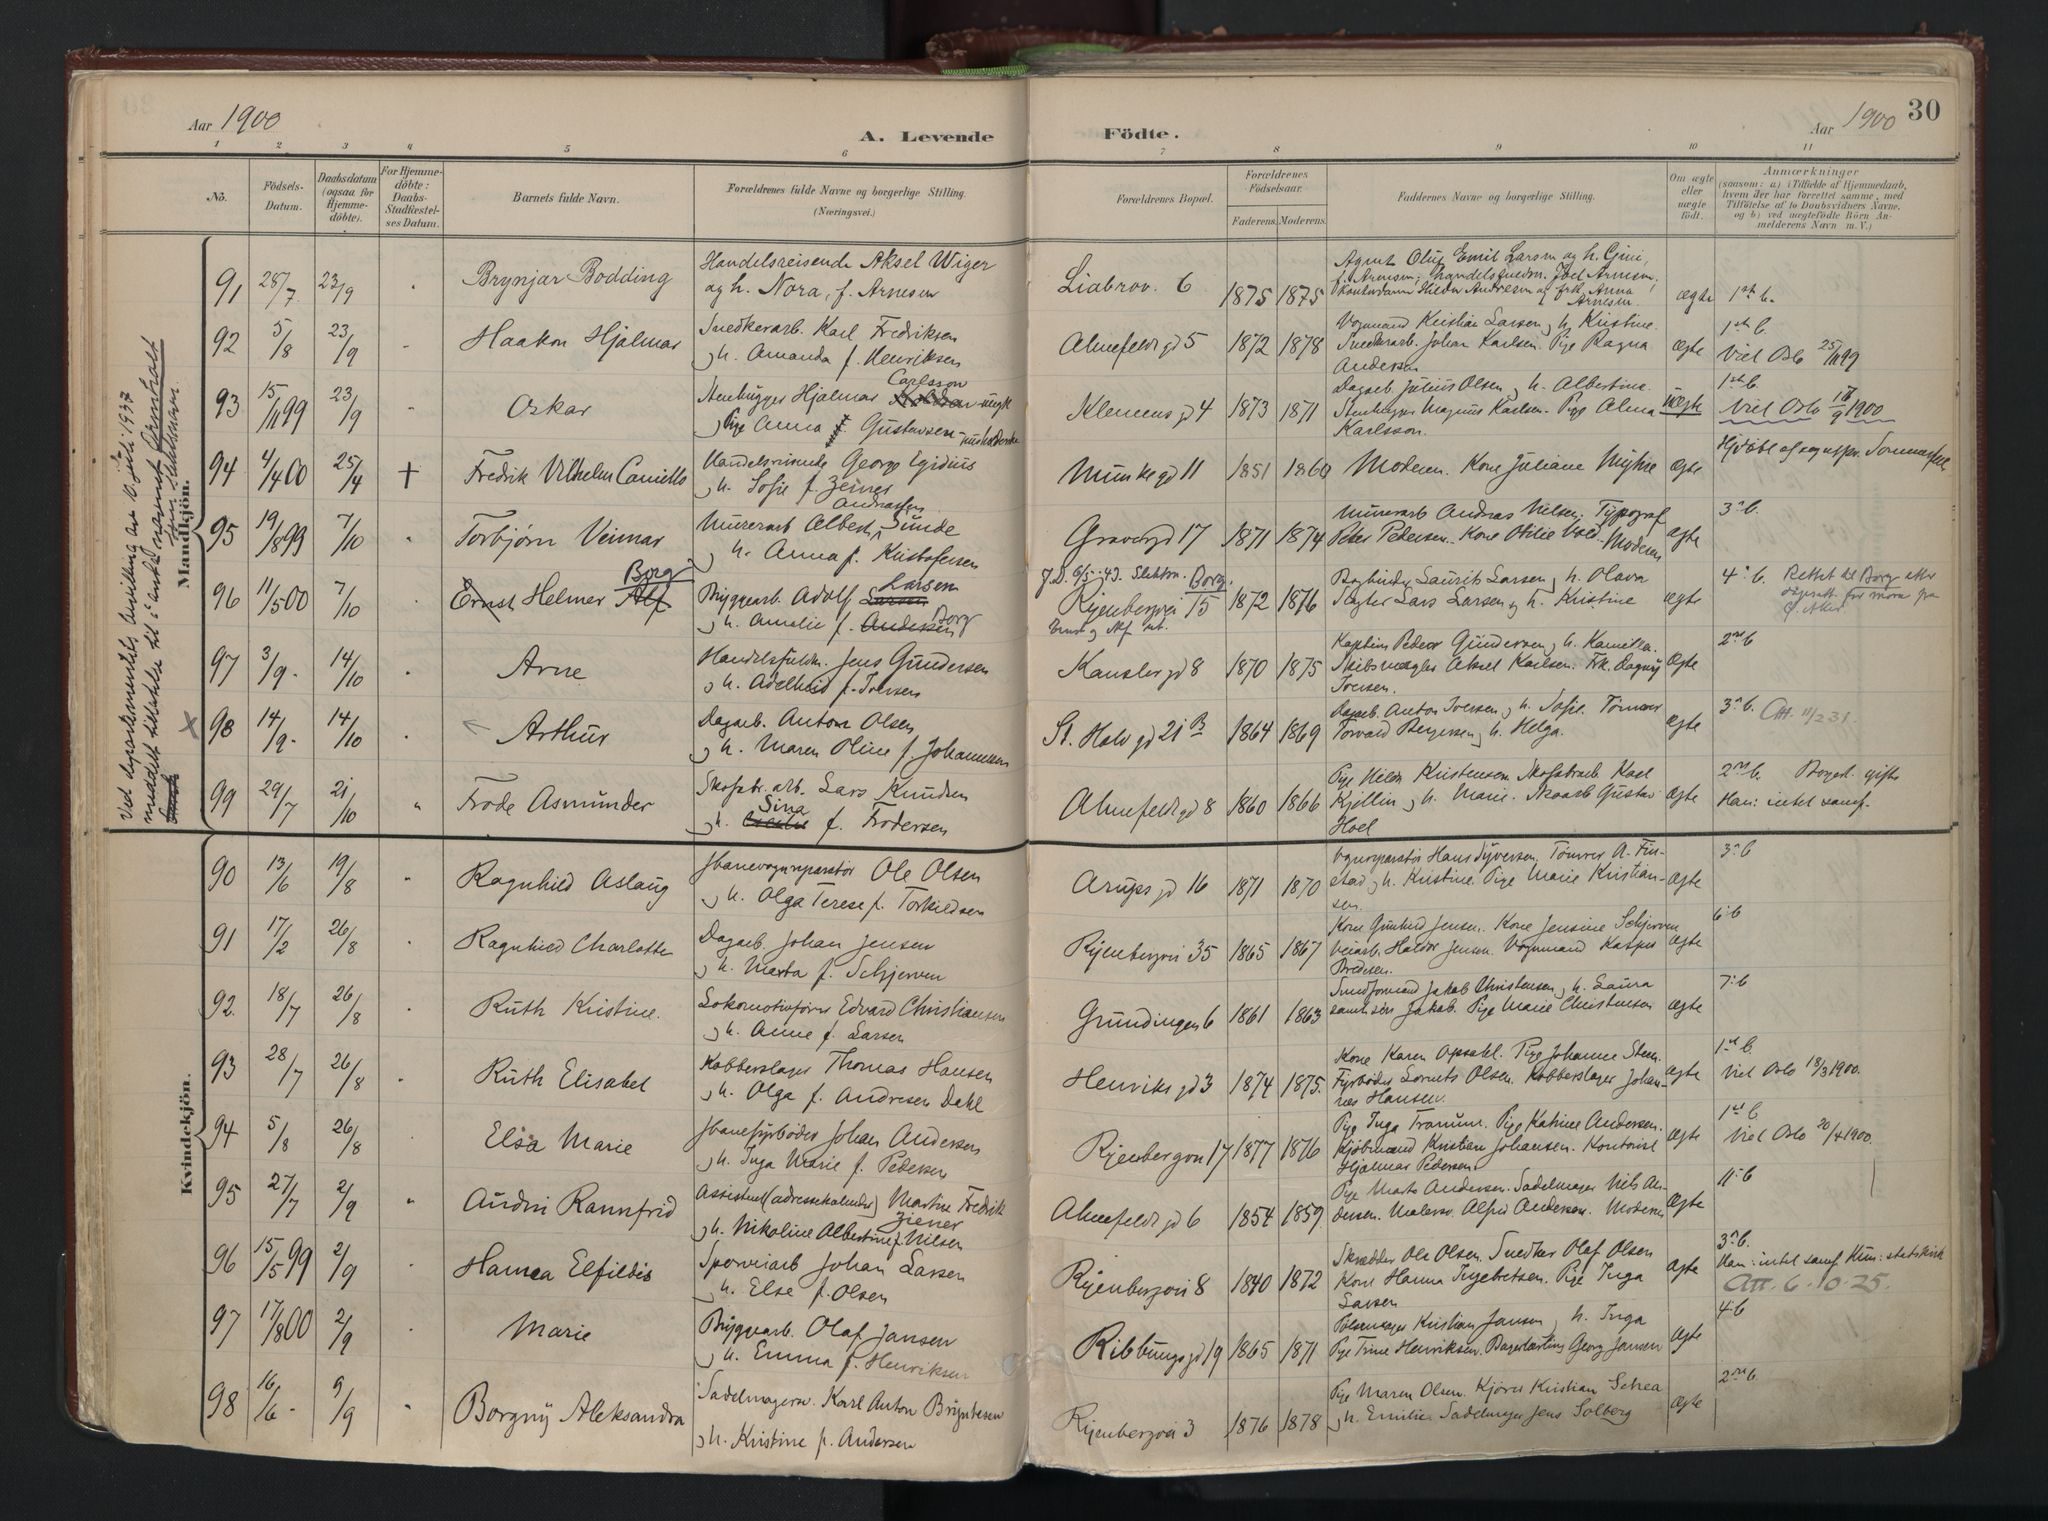 Aar 1900
A. Levende
Födte.
Aar 1900
30
1 2 3 4 5 6 7 8 9 10 11
No.
Födsels-
Datum.
Daabsdatum
(ogsaa for
Hjemme-
döbte).
For Hjemme-
döbte:
Daabs-
Stadfæstel-
ses Datum.
Barnets fulde Navn.
Forældrenes fulde Navne og borgerlige Stilling.
(Næringsvei.)
Forældrenes Bopæl.
Forældrenes
Födselsaar.
Faderens. Moderens.
Faddernes Navne og borgerlige Stilling.
Om ægte
eller
uægte
födt.
Anmærkninger
(saasom: a) i Tilfælde af Hjemmedaab,
hvem der har forrettet samme, med
Tilföielse af to Daabsvidners Navne,
og b) ved uægtefödte Börn An-
melderens Navn m. V.)
Mandkjön.
91 28/7 23/9 " Brynjar Bodding
Handelsreisende Aksel Wiger
og h. Nora, f. Arnesen
Liabrov. 6 1875 1875
Agent Oluf Emil Larsen og h. Gini,
f. Arnesen; Joel Arnesen;
Hilda Andresen og frk. Anna
Arnesen.
ægte 1ste b.
92 5/8 23/9 " Haakon Hjalmar
Snedkerarb. Karl Fredriksen
og h. Amanda f. Henriksen
Alnefeldt gd 5 1872 1878
Vognmand Kristian Larsen og h. Kristine.
Snedkerarb. Johan Karlsen. Pige Ragna
Andersen
ægte 1ste b.
Viet Oslo 25/11 99
93 15/11 99 23/9 " Oskar
Carlsson
Stenhugger Hjalmar
Pige Anna f. Gustavsen
Klemens gd 4 1873 1871
Dagarb. Julius Olsen og h. Albertine.
Stenhugger Magnus Karlsen. Pige Alma
Karlsson.
uægte 1ste b.
Viet Oslo 16/9 1900
94 4/4 00 25/4 + Fredrik Vilhelm Camillo
Handelsreisende Georg Egidius
og h. Sofie f. Zeiner
Munke gd 11 1851 1860
Moderen. Kone Juliane Myhre
ægte
95 19/8 99 7/10 " Torbjørn Veimar
Andreassen
Murerarb Albert Sunde
og h. Anna f. Kristofersen
Graver gd 17 1871 1874
Murerarb Andreas Nilsen. Typograf
Peter Pedersen. Kone Otilie Vold. Moderen
ægte 3die b.
96 11/5 00 7/10 " Ernst Helmer Alf
Borg
Larsen
Bryggearb. Adolf Larsen
og h. Amalie f. Andersen Borg
J.D. 6/5 43. Slektsn. Borg.
Ryenbergvei 15 1872 1876
Ernst og Alf ut.
Bogbinder Laurits Larsen og h. Olava
Lars Larsen og h. Kristine
ægte 4de b. Rettet til Borg etter
97 3/9 14/10 " Arne
Handelsfuldm. Jens Gundersen
og h. Adelheid f. Iversen
Kansler gd 8 1870 1875
Kaptein Peder Gundersen og h. Kamilla.
Skibsmægler Aksel Karlsen. Frk. Dagny
Iversen.
ægte 2den b
98 14/9 14/10 " Arthur
Dagarb. Anton Olsen
og h. Maren Oline f. Johannesen
St. Halv gd 21 B 1864 1869
Dagarb. Anton Iversen og h. Sofie. Tømmer
Torvald Bergersen og h. Helga.
ægte 3die b. Att. 11/2 31.
99 29/7 21/10 " Frode Asmunder
Skofabr. arb. Lars Knudsen
Sina
og h. f. Frodersen
Alnefeldt gd 8 1860 1866
Pige Hilda Kristensen. Skofabrarb. Karl
Kjellin og h. Marie. Skoarb Gustav
Hoel
ægte 2den b. Borgerl. gifte
Han: intet samf.
Kvindekjön.
90 13/6 19/8 " Ragnhild Aslaug
Jbanevognreparatør Ole Olsen
og h. Olga Terese f. Torkildsen
Arups gd 16 1871 1870
Vognreparatør Hans Syversen. Tømrer A. Fin-
stad og h. Kristine. Pige Marie Kristian-
sen.
ægte 3die b
91 17/2 26/8 " Ragnhild Charlotte
Dagarb. Johan Jensen
og h. Marta f. Schjerven
Ryenbergvei 35 1865 1867
Kone Gunhild Jensen. Kone Jensine Schjerven
Veiarb. Haldor Jensen. Vognmand Kasper
Bredesen.
ægte 6te b
92. 18/7 26/8 " Ruth Kristine.
Lokomotivfører Edvard Christiansen
og h. Anne f. Larsen
Grundingen 6 1861 1863
Jakob Christensen og h. Laura
samt søn Jakob. Pige Marie Christensen
ægte 7de b
93 28/7 26/8 " Ruth Elisabet
Kobberslager Thomas Hansen
og h. Olga f. Andresen Dahl
Henriks gd 3 1874 1875.
Kone Karen Opsahl. Pige Johanne Steen.
Fyrbøder Lorents Olsen. Kobberslager Johan-
nes Hansen.
ægte 1ste b
Viet Oslo 18/3 1900.
94 5/8 26/8 " Elsa Marie
Jbanefyrbøder Johan Andersen
og h. Inga Marie f. Pedersen
Ryenbergvei 17 1877 1876
Pige Inga. Pige Katrine Andersen.
Kjøbmand Kristian Johansen. Kontorist
Hjalmar Pedersen
ægte 1ste b
Viet Oslo 20/4 1900.
95 27/7 2/9 " Audni Rannfrid
Assistent (adressekalender) Martin Fredrik
Ziener
og h. Nikoline Albertine f. Nilsen
Alnefeldt gd 6 1854 1859.
Pige Marta Andersen. Sadelmager Nils An-
dersen. Malersv. Alfred Andersen. Moderen
ægte 11te b
96 15/5 99 2/9 " Hanna Elfildis
Sporveiarb Johan Larsen
og h. Else f. Olsen
Ryenbergvei 8 1840 1872
Skrædder Ole Olsen. Snedker Olaf Olsen
Kone Hanna Ingebretsen. Pige Inga
Larsen
ægte 3die b.
Han: intet samf. Hun: statskirk
Att. 6.10.25.
97 17/8 00 2/9 " Marie
Bryggearb. Olaf Jansen
og h. Emma f. Henriksen
Ribbungs gd 19 1865 1871
Pølsemager Kristian Jansen og h. Inga
Pige Trine Henriksen. Bagerlærling Georg Jansen
ægte 4de b
98 16/6 9/9 " Borgny Aleksandra
Sadelmagersv. Karl Anton Bryntesen
og h. Kristine f. Andersen
Ryenbergvei 3 1876 1878
Pige Maren Olsen. Kjører Kristian
og h. Emilie. Sadelmager Jens Solberg
ægte 2den b